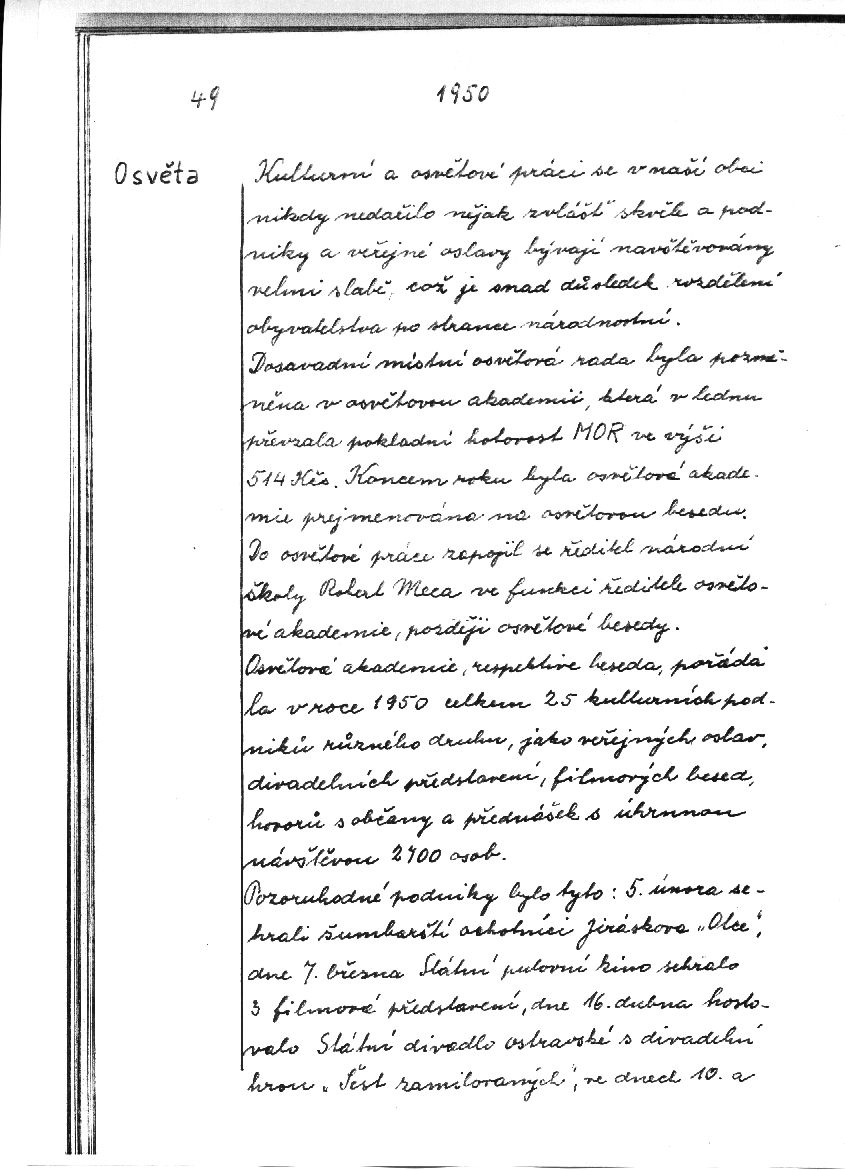 49 1950
Osvěta
Kulturní a osvětové práci se v naší obci
nikdy nedařilo nějak zvlášť skvěle a pod-
niky a veřejné oslavy bývají navštěvovány
velmi slabě, což je snad důsledek rozdělení
obyvatelstva po strance národnostní.
Dosavadní místní osvětová rada byla pozmě-
něna v osvětovou akademii, která v lednu
převzala pokladní hotovost MOR ve výši
514 Kčs. Koncem roku byla osvětová akade-
mie prejmenována na osvětovou besedu.
Do osvětové práce zapojil se ředitel národní
školy Robert Meca ve funkci ředitele osvěto-
vé akademie, později osvětové besedy.
Osvětová akademie, respektive beseda, pořáda
la v roce 1950 celkem 25 kulturních pod-
niků různého druhu, jako veřejných oslav,
divadelních představení, filmových besed,
hovorů s občany a přednášek s úhrnnou
návštěvou 2700 osob.
Pozoruhodné podniky bylo tyto: 5. února se-
hrali šumbarští ochotníci Jiráskova „Otce“,
dne 7. března Státní putovní kino sehrálo
3 filmová představení, dne 16. dubna hosto-
valo Státní divadlo ostravské s divadelní
hrou „Šest zamilovaných“, ve dnech 10. a